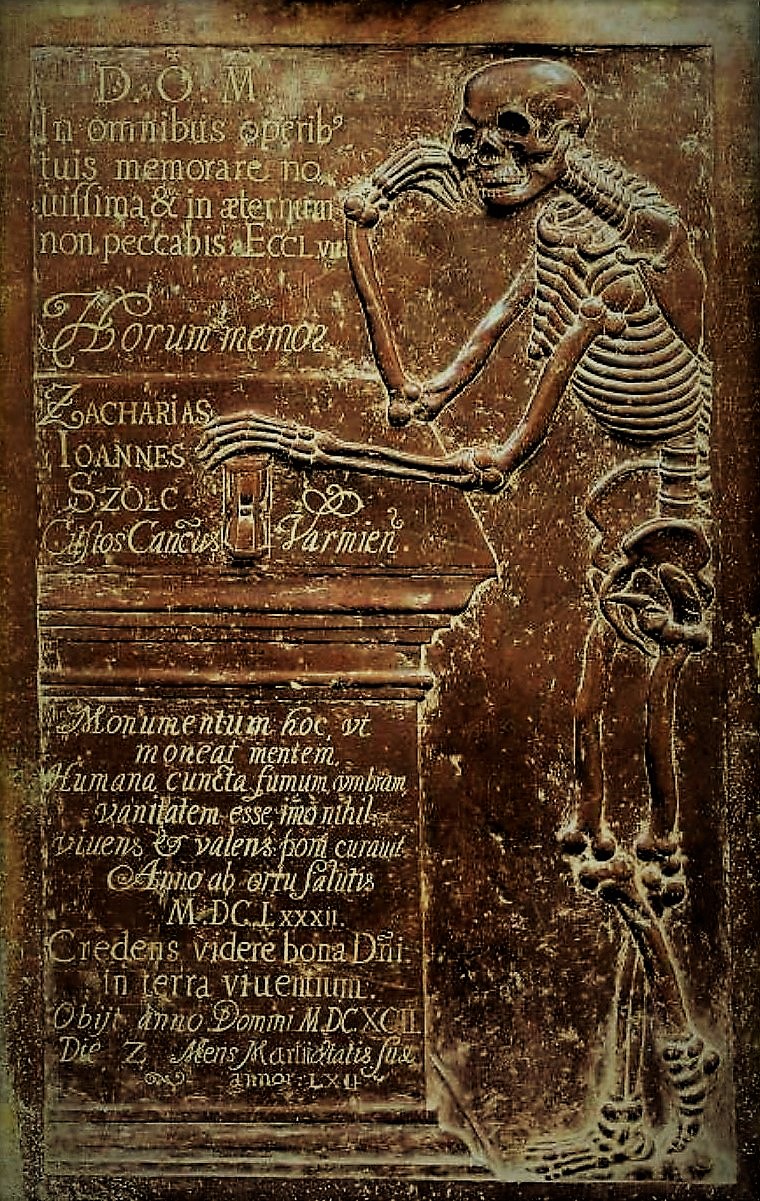 D. O. M.
In omnibus operib⁹
tuis memorare no,
uissima & in æternum
non peccabis. ECCL VII
Horum memor
ZACHARIAS
IOANNES
SZOLC
Custos Canc̃us Varmien̄.
Monumentum hoc, vt
moneat mentem,
Humana cuncta fumum, vmbram,
vanitatem esse, imò nihil,
viuens & valens poni curauit
Anno ab ortu salutis
M.DC.LXXXII.
Credens videre bona Dñi.
in terra viuentium.
Obijt anno Domini M.DC.XCII
Die 2 Mens Martii ætatis suæ
annor: LXII